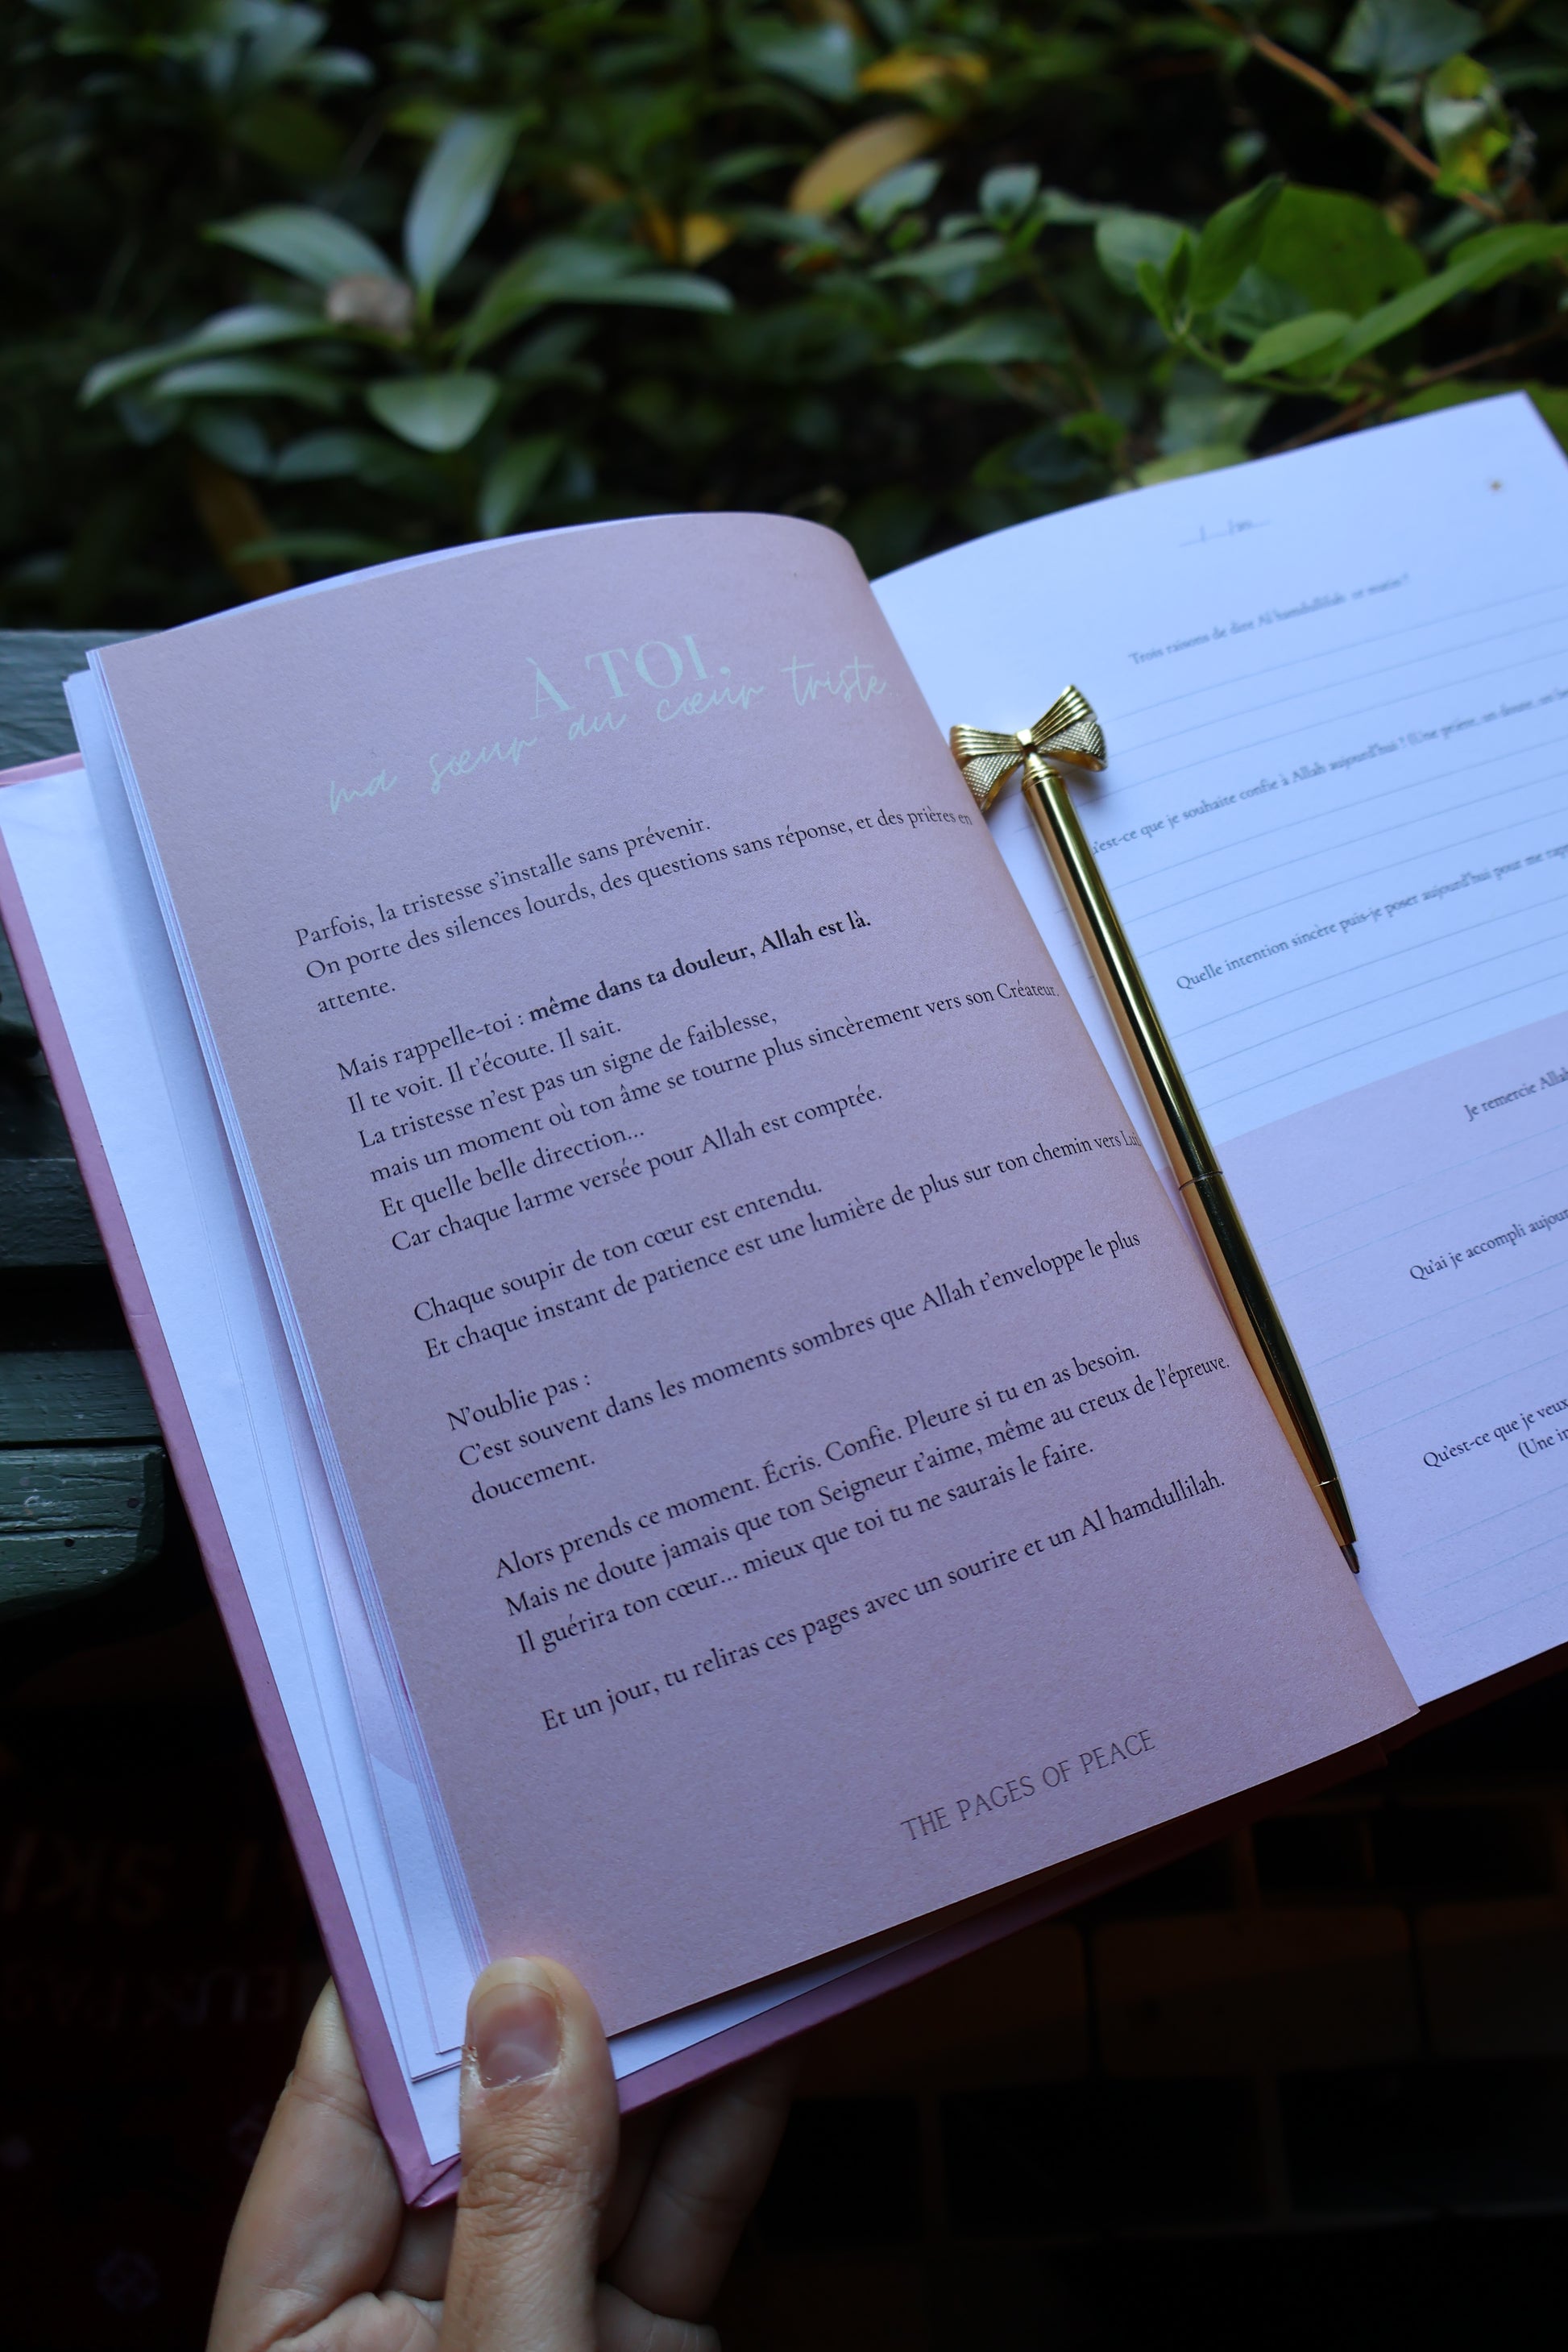 À TOI,
ma sœur au cœur triste
Parfois, la tristesse s'installe sans prévenir.
On porte des silences lourds, des questions sans réponse, et des prières en
attente.
Mais rappelle-toi : même dans ta douleur, Allah est là.
Il te voit. Il t'écoute. Il sait.
La tristesse n'est pas un signe de faiblesse,
mais un moment où ton âme se tourne plus sincèrement vers son Créateur.
Et quelle belle direction...
Car chaque larme versée pour Allah est comptée.
Chaque soupir de ton cœur est entendu.
Et chaque instant de patience est une lumière de plus sur ton chemin vers Lui
N'oublie pas :
C'est souvent dans les moments sombres que Allah t'enveloppe le plus
doucement.
Alors prends ce moment. Écris. Confie. Pleure si tu en as besoin.
Mais ne doute jamais que ton Seigneur t'aime, même au creux de l'épreuve.
Il guérira ton cœur... mieux que toi tu ne saurais le faire.
Et un jour, tu reliras ces pages avec un sourire et un Al hamdullilah.
THE PAGES OF PEACE
Trois raisons de dire Al hamdullilah ce matin ?
u'est-ce que je souhaite confie à Allah aujourd'hui ? (Une prière, un
Quelle intention sincère puis-je poser aujourd'hui pour me
Je remercie Allah
Qu'ai je accompli
Qu'est-ce que je veux
(Une